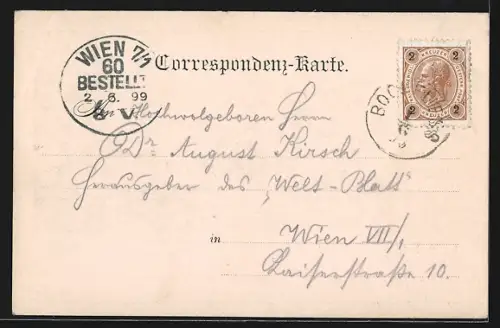 WIEN 7/1
60
BESTELLT
2. 6. 99
8 V
Correspondenz-Karte.
2 KREUZER 2
2 2
An Hochwolgeboren Herrn
Dr August Kirsch
Herausgeber des „Welt-Blatt"
in Wien VII/1
Kaiserstraße 10.